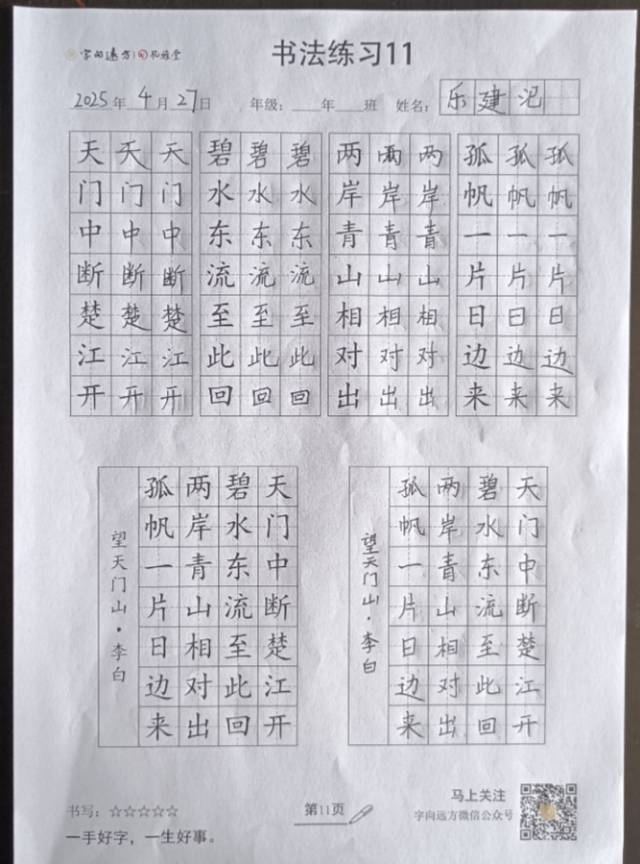 字向远方
书法练习11
2025年4月27日 年级:___年___班 姓名:乐建
天天天 碧碧碧 两两两 孤孤孤
门门门 水水水 岸岸岸 帆帆帆
中中中 东东东 青青青 一一一
断断断 流流流 山山山 片片片
楚楚楚 至至至 相相相 日日日
江江江 此此此 对对对 边边边
开开开 回回回 出出出 来来来
天门中断楚江开
碧水东流至此回
两岸青山相对出
孤帆一片日边来
望天门山·李白
天门中断楚江开
碧水东流至此回
两岸青山相对出
孤帆一片日边来
望天门山·李白
书写:☆☆☆☆☆
一手好字,一生好事。
第11页
马上关注
字向远方微信公众号